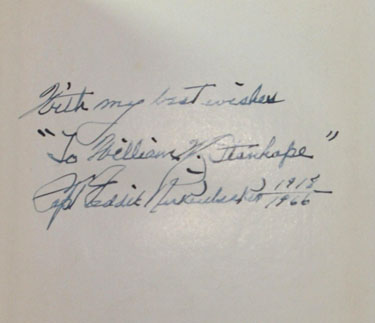 With my best wishes
"To William V. Stanhope"
Capt Eddie Rickenbacker 1918
1966